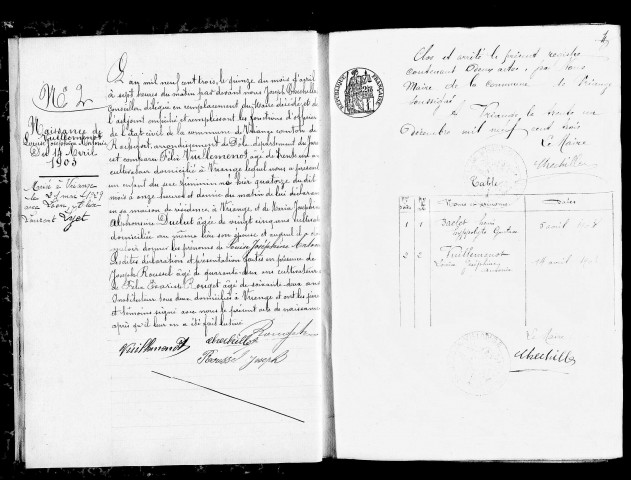 N° 2
Naissance de
Vuillemenot
Louise Joséphine Antonia
Du 14 Avril
1903
Marié à Vriange
le 21 mars 1929
avec Léon
L'an mil neuf cent trois, le quinze du mois d'avril
à sept heures du matin par devant nous Joseph Chechillot
Conseiller, délégué en remplacement du Maire décédé et de
l'adjoint empêché et remplissant les fonctions d'officier
de l'état civil de la commune de Vriange canton de
Rochefort, arrondissement de Dole département du Jura
est comparu Félix Vuillemenot âgé de trente ans
cultivateur domicilié à Vriange lequel nous a présenté
un enfant du sexe féminin né hier quatorze du dit
mois à onze heures et demie du matin de lui déclarant
en sa maison de résidence à Vriange et de Maria Joséphine
Alphonsine Duclut âgée de vingt cinq ans
domiciliée au même lieu son épouse et auquel il a
déclaré vouloir donner les prénoms de Louise Joséphine Antonia
Lesdites déclaration et présentation faites en présence de
Joseph Roussel âgé de quarante ans cultivateur
et de Félix Rouget âgé de soixante deux ans
Instituteur tous deux domiciliés à Vriange et ont les père
et témoins signé avec nous le présent acte de naissance
après qu'il leur en a été fait lecture
Vuillemenot Chechillot
Roussel Joseph
RÉPUBLIQUE FRANÇAISE
Clos et arrêté le présent registre
contenant deux actes, par nous
Maire de la commune de Vriange
soussigné
à Vriange, le trente un
Décembre mil neuf cent trois
Le Maire
Chechillot
Table
Noms et prénoms Dates
1 1
Hippolyte Gustave 5 avril
2 2 Vuillemenot
Louise Joséphine
Antonia 14 avril 1903
Le Maire
Chechillot